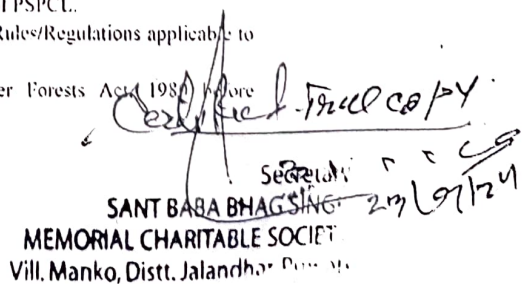 PSPCL.
Rules/Regulations applicable to
er Forests Act 1980 before
Certified True copy
Secretary
SANT BABA BHAG SING
MEMORIAL CHARITABLE SOCIET
Vill. Manko, Distt. Jalandhar